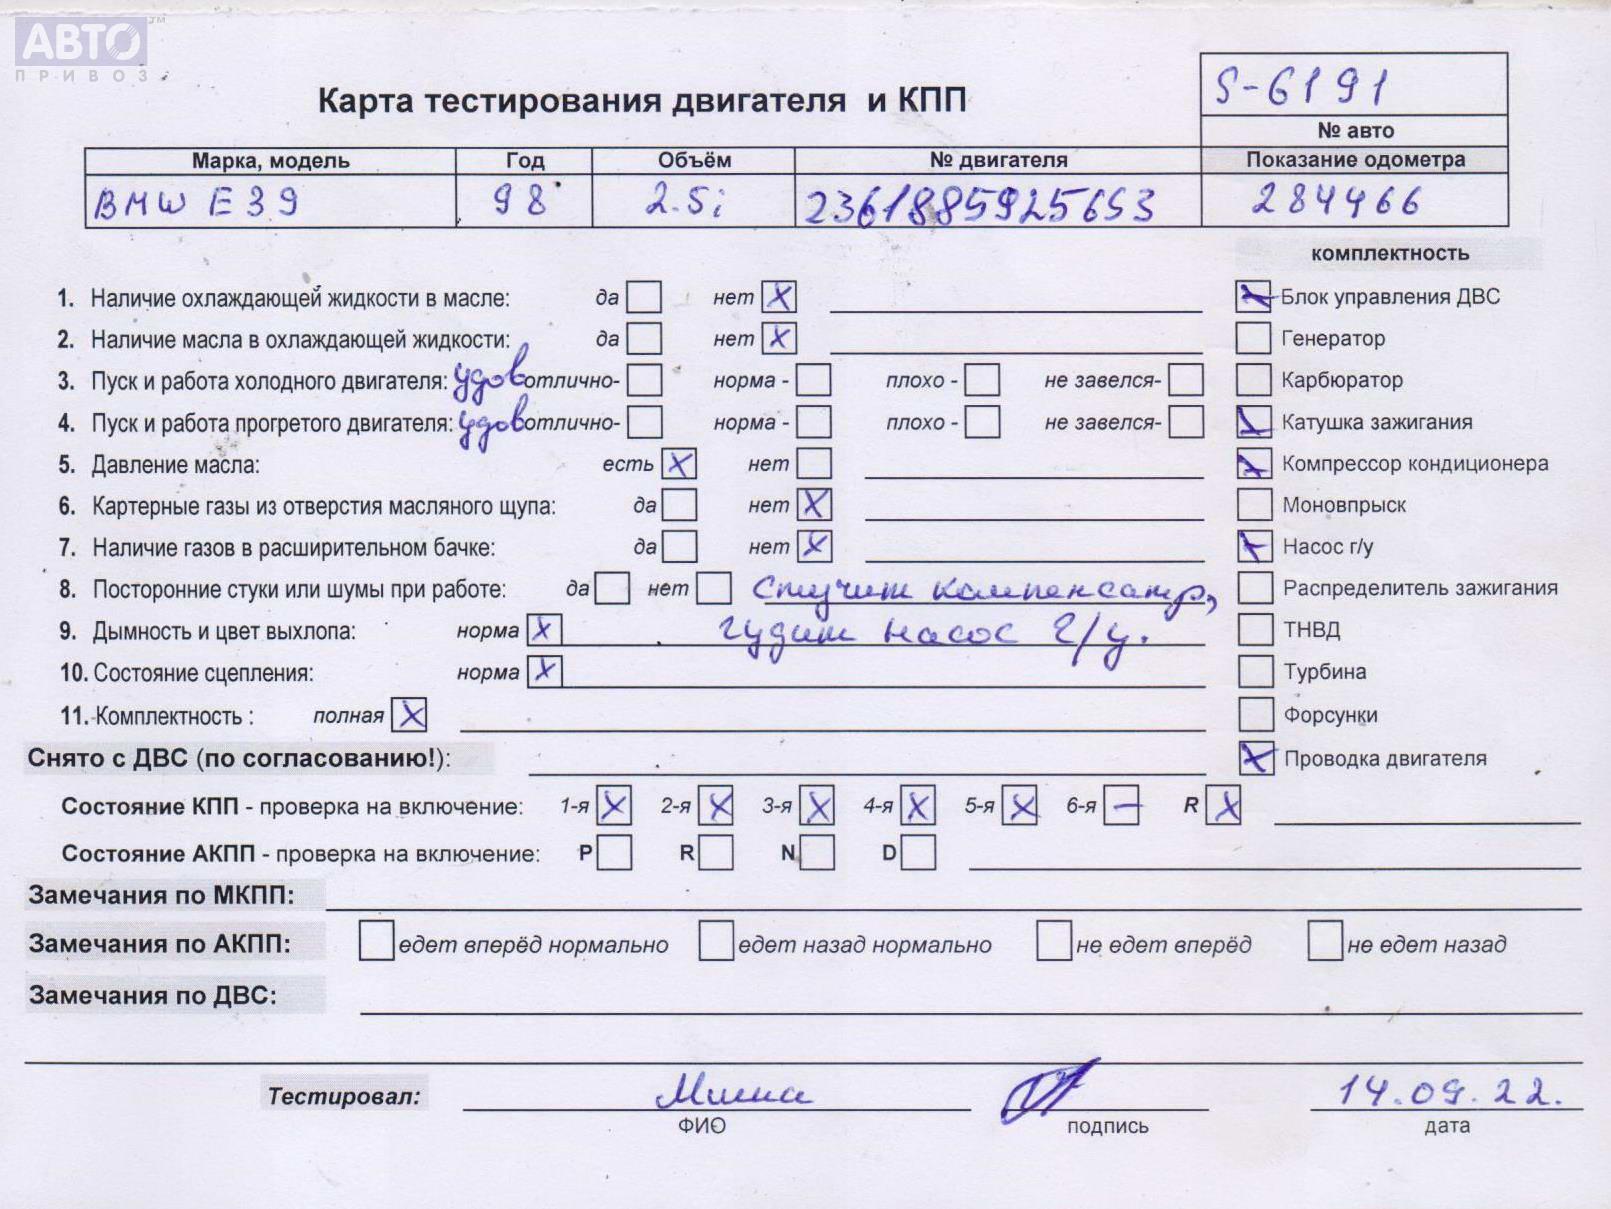 АВТО™
ПРИВОЗ
Карта тестирования двигателя и КПП
S-6191
№ авто
Марка, модель Год Объём № двигателя Показание одометра
BMW E39 98 2.5i 23618859256S3 284466
комплектность
1. Наличие охлаждающей жидкости в масле: да нет X Блок управления ДВС
2. Наличие масла в охлаждающей жидкости: да нет X Генератор
3. Пуск и работа холодного двигателя: удов отлично- норма - плохо - не завелся- Карбюратор
4. Пуск и работа прогретого двигателя: удов отлично- норма - плохо - не завелся- Катушка зажигания
5. Давление масла: есть X нет Компрессор кондиционера
6. Картерные газы из отверстия масляного щупа: да нет X Моновпрыск
7. Наличие газов в расширительном бачке: да нет X Насос г/у
8. Посторонние стуки или шумы при работе: да нет Стучит компенсатр, Распределитель зажигания
9. Дымность и цвет выхлопа: норма X гудит насос г/у. ТНВД
10. Состояние сцепления: норма X Турбина
11. Комплектность : полная X Форсунки
Снято с ДВС (по согласованию!): Проводка двигателя
Состояние КПП - проверка на включение: 1-я X 2-я X 3-я X 4-я X 5-я X 6-я – R X
Состояние АКПП - проверка на включение: P R N D
Замечания по МКПП:
Замечания по АКПП: едет вперёд нормально едет назад нормально не едет вперёд не едет назад
Замечания по ДВС:
Тестировал: Миша 14.09.22.
ФИО подпись дата